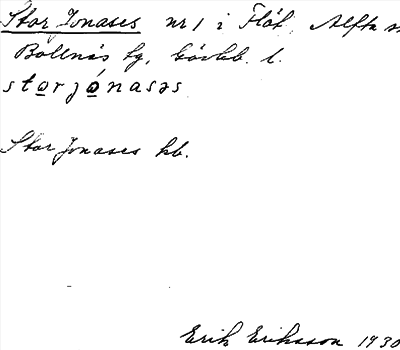 Stor Jonases nr 1 i Flöt, Alfta s
Bollnäs tg, Gävleb. l.
storjónasəs
Stor Jonases kb.
Erik Eriksson 1930